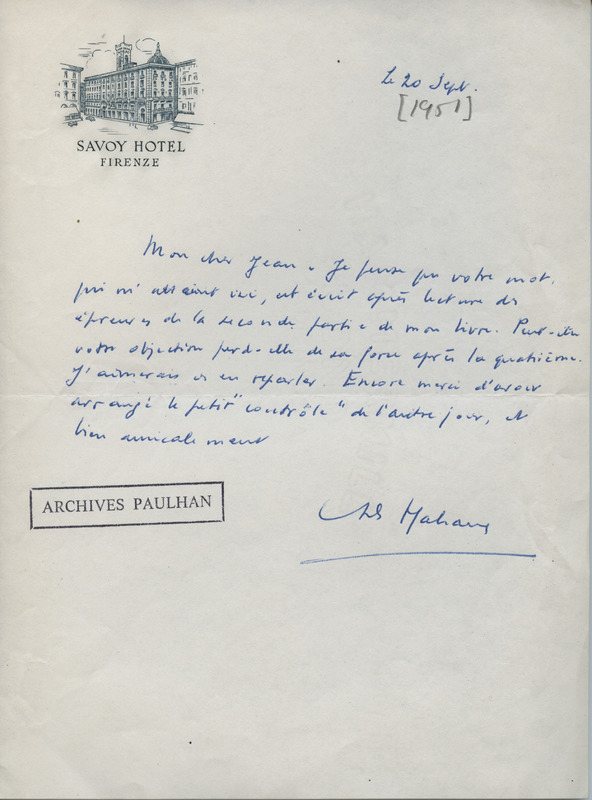 Le 20 Sept.
[1951]
SAVOY HOTEL
FIRENZE
Mon cher Jean. Je pense que votre mot,
qui m'attend ici, est écrit après lecture des
épreuves de la seconde partie de mon livre. Peut-être
votre objection perd-elle de sa force après la quatrième.
J'aimerais en reparler. Encore merci d'avoir
arrangé le petit "contrôle" de l'autre jour, et
bien amicalement
ARCHIVES PAULHAN